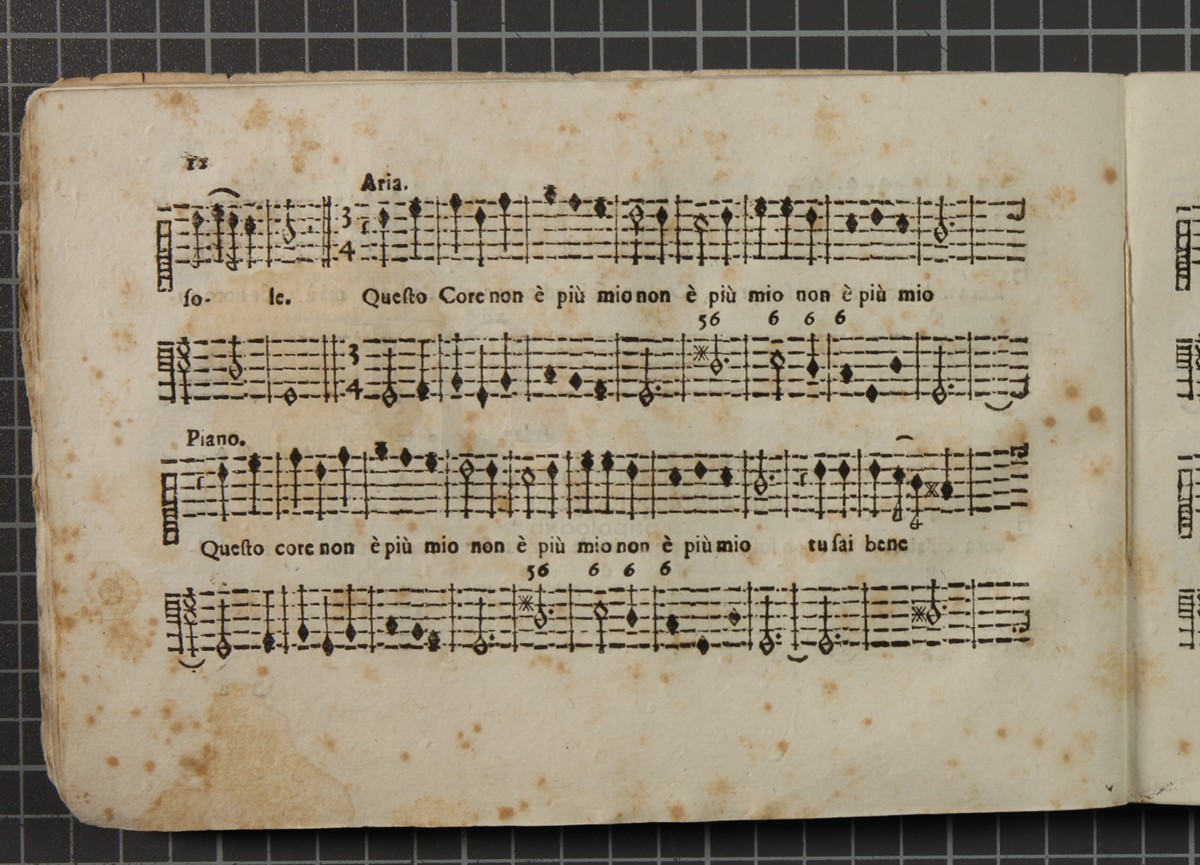 12
Aria.
3
4
ſo- le. Queſto Core non è più mio non è più mio non è più mio
56 6 6 6
3
4
Piano.
Queſto core non è più mio non è più mio non è più mio tu ſai bene
56 6 6 6